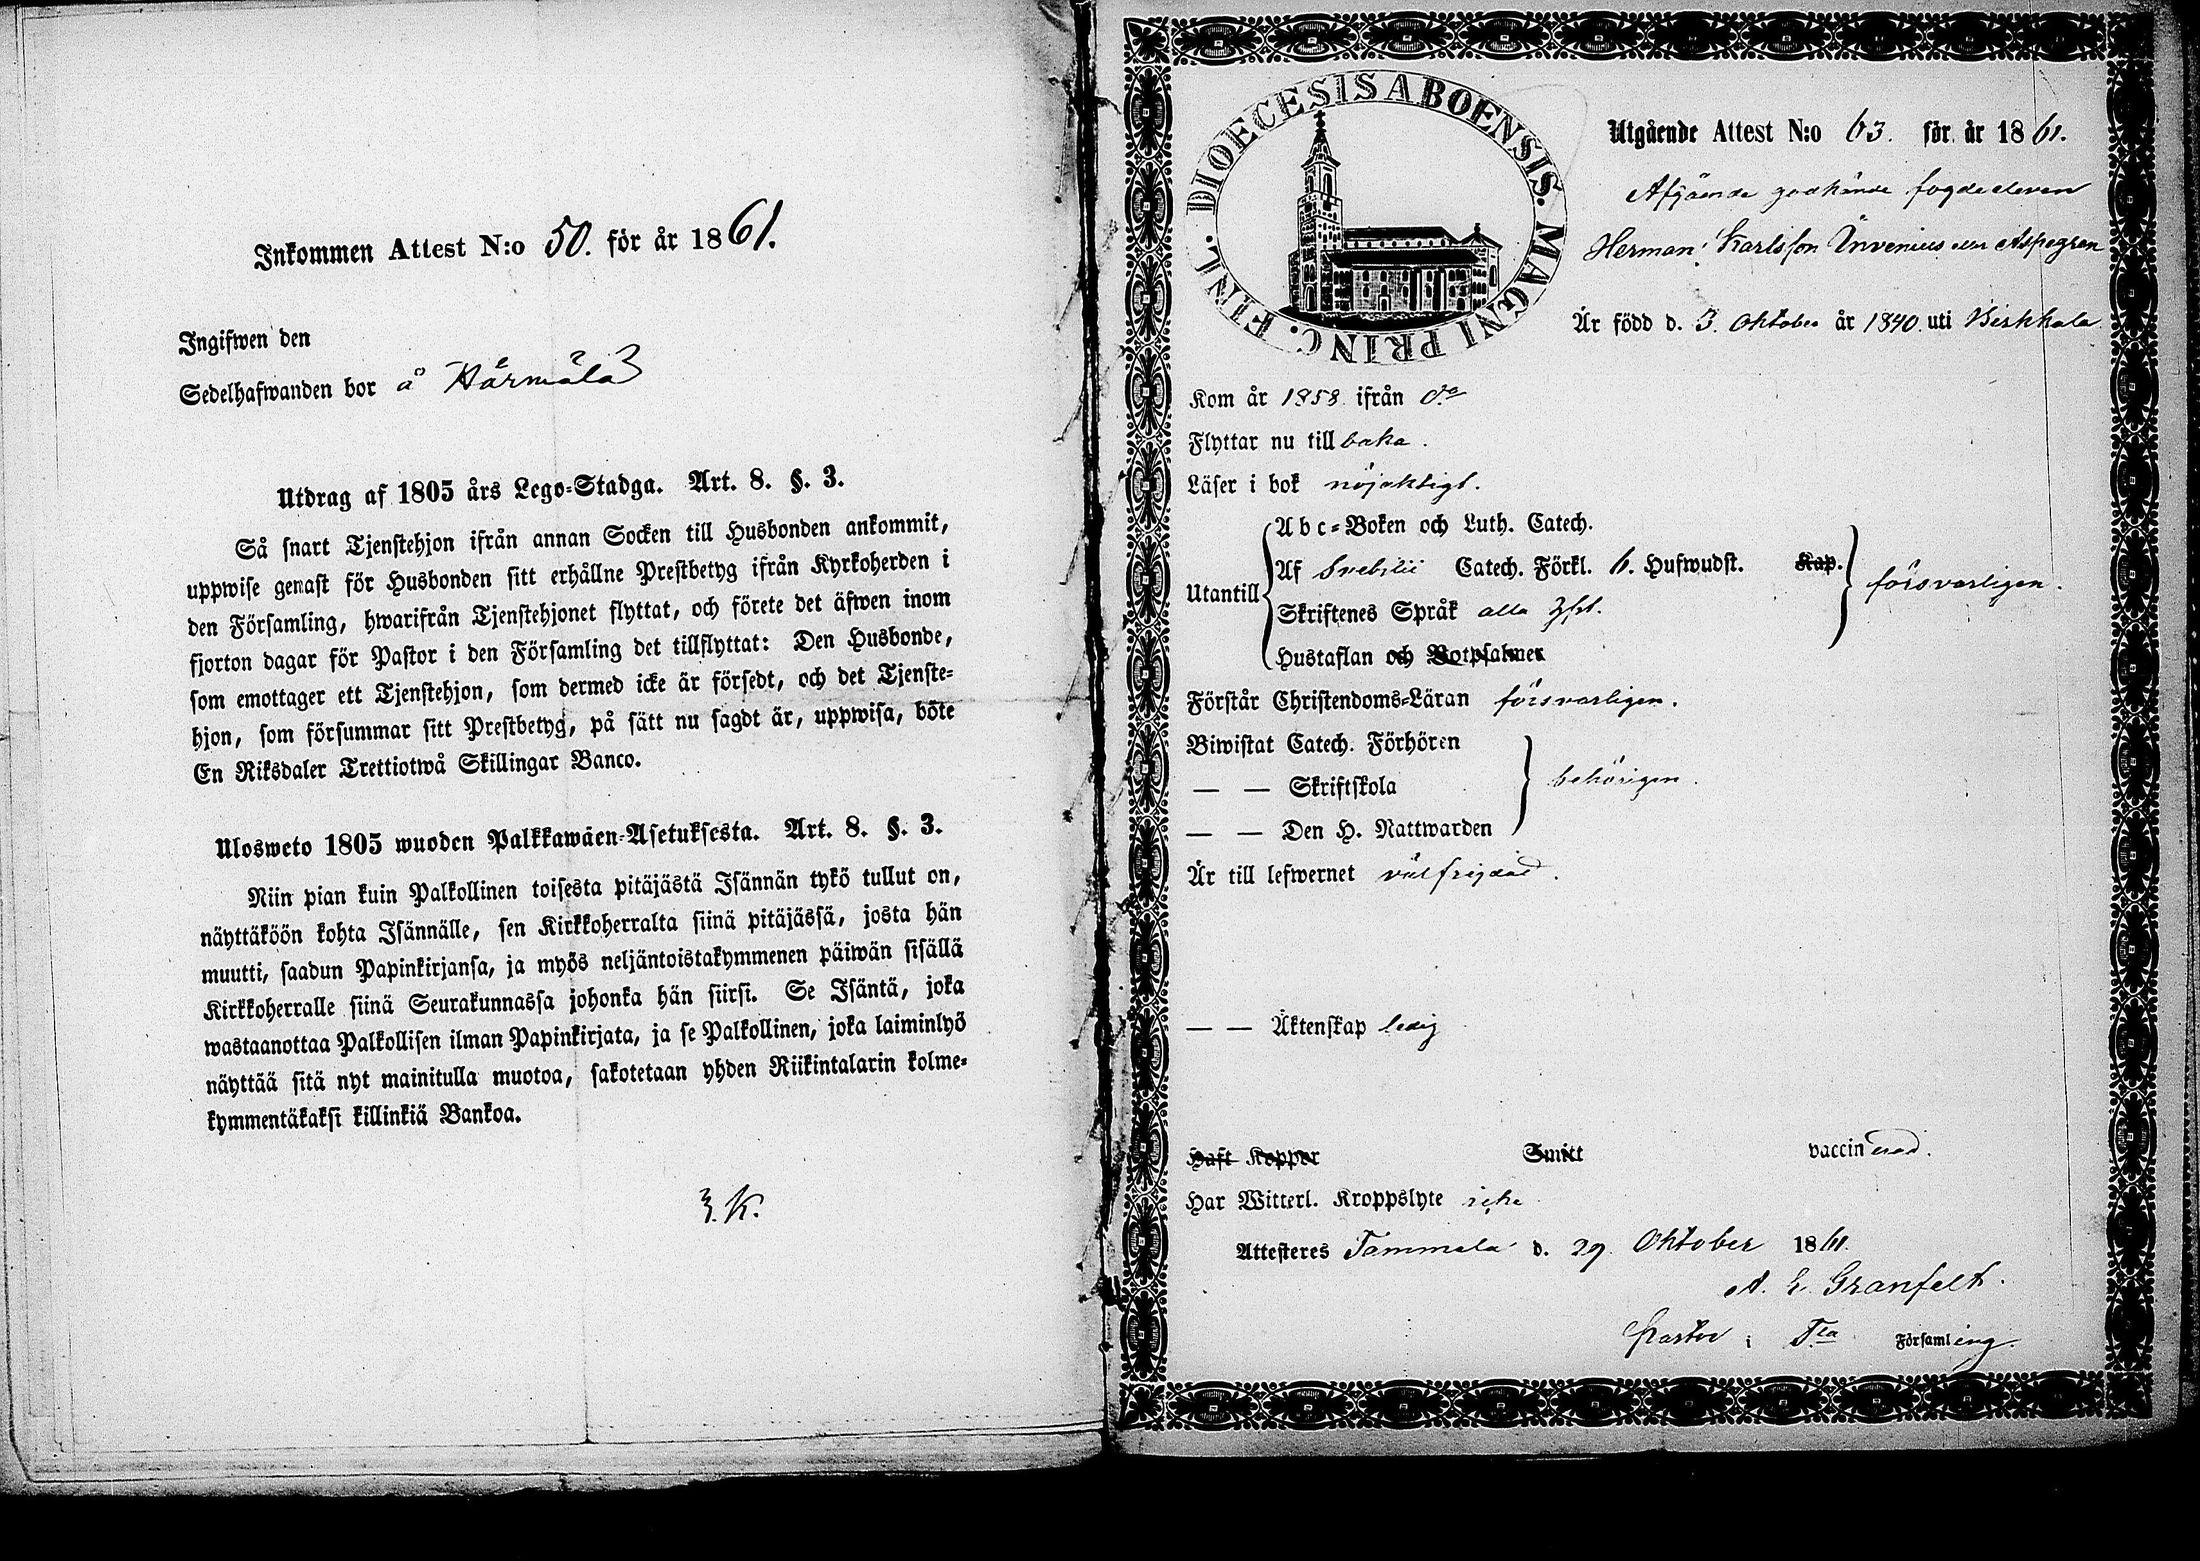 Inkommen Attest N:o 50. för år 1861.
Ingifwen den
Sedelhafwanden bor å Härmälä
Utdrag af 1805 års Lego-Stadga. Art. 8. §. 3.
Så snart Tjenstehjon ifrån annan Socken till Husbonden ankommit,
uppwise genast för Husbonden sitt erhållne Prestbetyg ifrån Kyrkoherden i
den Församling, hwarifrån Tjenstehjonet flyttat, och förete det äfwen inom
fjorton dagar för Pastor i den Församling det tillflyttat: Den Husbonde,
som emottager ett Tjenstehjon, som dermed icke är försedt, och det Tjenste-
hjon, som försummar sitt Prestbetyg, på sätt nu sagdt är, uppwisa, böte
En Riksdaler Trettiotwå Skillingar Banco.
Ulosweto 1805 wuoden Palkkawäen-Asetuksesta. Art. 8. §. 3.
Niin pian kuin Palkollinen toisesta pitäjästä Isännän tykö tullut on,
näyttäköön kohta Isännälle, sen Kirkkoherralta siinä pitäjässä, josta hän
muutti, saadun Papinkirjansa, ja myös neljäntoistakymmenen päiwän sisällä
Kirkkoherralle siinä Seurakunnassa johonka hän siirsi. Se Isäntä, joka
wastaanottaa Palkollisen ilman Papinkirjata, ja se Palkollinen, joka laiminlyö
näyttää sitä nyt mainitulla muotoa, sakotetaan yhden Riikintalarin kolme-
kymmentäkaksi killinkiä Bankoa.
3. K.
DIOECESIS ABOENSIS. MAGNI PRINC. FINL.
Utgående Attest N:o 63. för år 1861.
Afgående godkände fogdeeleven
Herman Karlsson Invenius eller Aspegren
Är född d. 3. Oktober år 1840. uti Birkkala
Kom år 1858. ifrån d:o
Flyttar nu tillbaka.
Läser i bok nöjaktigt.
Abc-Boken och Luth. Catech.
Utantill Af Svebilii Catech. Förkl. 6. Hufwudst. Kap. försvarligen.
Skriftenes Språk alla
Hustaflan och Botpsalmer
Förstår Christendoms-Läran försvarligen.
Biwistat Catech. Förhören
— — Skriftskola behörigen.
— — Den H. Nattwarden
Är till lefwernet välfrejdad.
— — Äktenskap ledig
Haft Koppor Smitt vaccinerad.
Har Witterl. Kroppslyte icke
Attesteres Tammela d. 29. Oktober 1861.
A. E. Granfelt.
Pastor i T:la Församling.